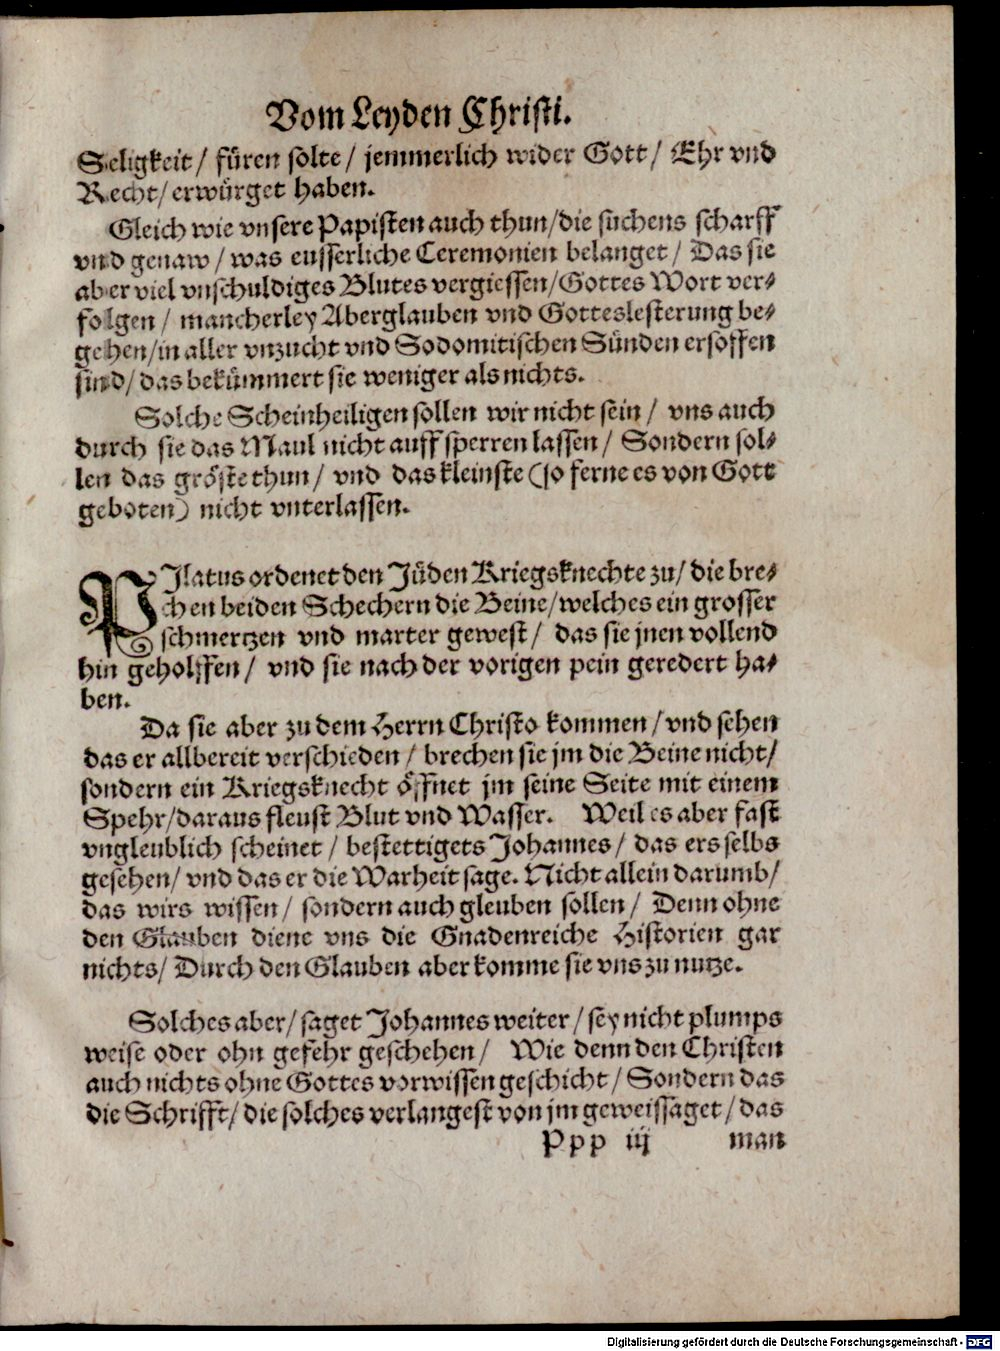 Vom Leyden Christi.
Seligkeit/ füren solte/ jemmerlich wider Gott/ Ehr vnd
Recht/ erwürget haben.
Gleich wie vnsere Papisten auch thun/die süchens scharff
vnd genaw/ was eusserliche Ceremonien belanget/ Das sie
aber viel vnschuldiges Blutes vergiessen/Gottes Wort ver-
folgen/ mancherley Aberglauben vnd Gotteslesterung be-
gehen/in aller vnzucht vnd Sodomitischen Sünden ersoffen
sind/ das bekümmert sie weniger als nichts.
Solche Scheinheiligen sollen wir nicht sein/ vns auch
durch sie das Maul nicht auff sperren lassen/ Sondern sol-
len das gröste thun/ vnd das kleinste (so ferne es von Gott
geboten) nicht vnterlassen.
PJlatus ordenet den Jüden Kriegsknechte zu/ die bre-
chen beiden Schechern die Beine/welches ein grosser
schmertzen vnd marter gewest/ das sie jnen vollend
hin geholffen/ vnd sie nach der vorigen pein geredert ha-
ben.
Da sie aber zu dem Herrn Christo kommen/vnd sehen
das er allbereit verschieden/ brechen sie jm die Beine nicht/
sondern ein Kriegsknecht öffnet jm seine Seite mit einem
Spehr/daraus fleust Blut vnd Wasser. Weil es aber fast
vngleublich scheinet/ bestettigets Johannes/ das ers selbs
gesehen/ vnd das er die Warheit sage. Nicht allein darumb/
das wirs wissen/ sondern auch gleuben sollen/ Denn ohne
den Glauben diene vns die Gnadenreiche Historien gar
nichts/ Durch den Glauben aber komme sie vns zu nutze.
Solches aber/ saget Johannes weiter/ sey nicht plumps
weise oder ohn gefehr geschehen/ Wie denn den Christen
auch nichts ohne Gottes vorwissen geschicht/ Sondern das
die Schrifft/ die solches verlangest von jm geweissaget/ das
Ppp iij man
Digitalisierung gefördert durch die Deutsche Forschungsgemeinschaft - DFG